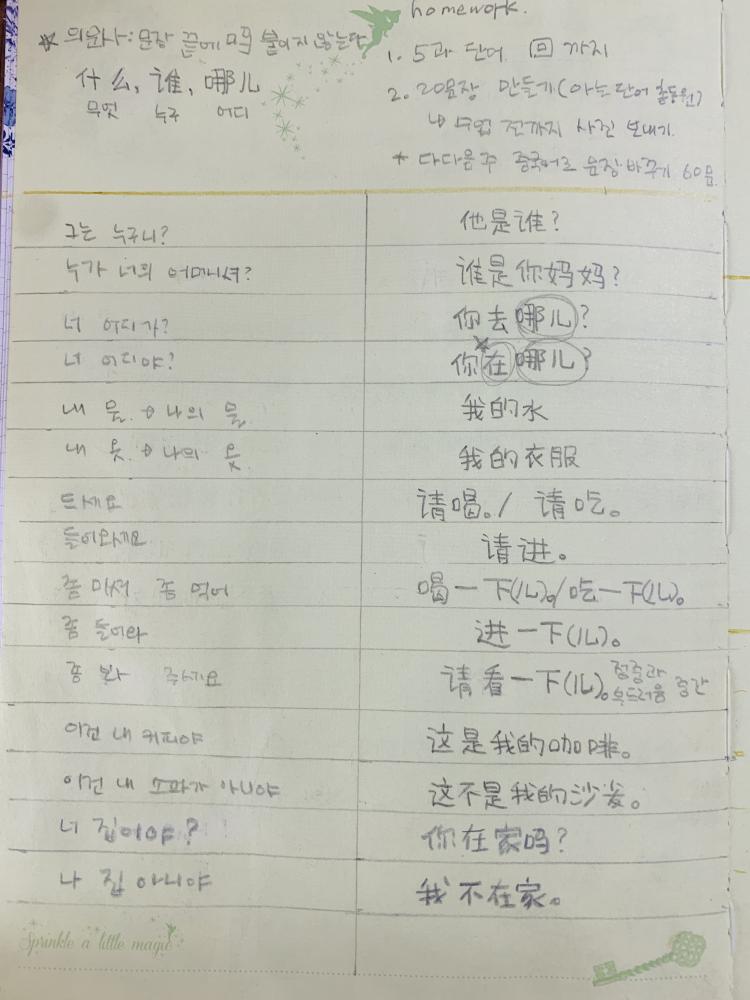 homework.
* 의문사: 문장 끝에 吗 붙이지 않는다
什么, 谁, 哪儿
무엇 누구 어디
1. 5과 단어 回 까지
2. 20문장 만들기(아는단어 총동원)
↳ 수업 전까지 사진 보내기
* 다다음주 중국어로 문장바꾸기 60문
그는 누구니? 他是谁?
누가 너의 어머니셔? 谁是你妈妈?
너 어디가? 你去哪儿?
너 어디야? 你在哪儿?
내 물 → 나의 물 我的水
내 옷 → 나의 옷 我的衣服
드세요 请喝。/ 请吃。
들어와세요 请进。
좀 마셔 좀 먹어 喝一下(儿)。/吃一下(儿)。
좀 들어와 进一下(儿)。
좀 봐 주세요 请看一下(儿)。정중과 부드러움 중간
이건 내 커피야 这是我的咖啡。
이건 내 소파가 아니야 这不是我的沙发。
너 집이야? 你在家吗?
나 집 아니야 我不在家。
Sprinkle a little magic